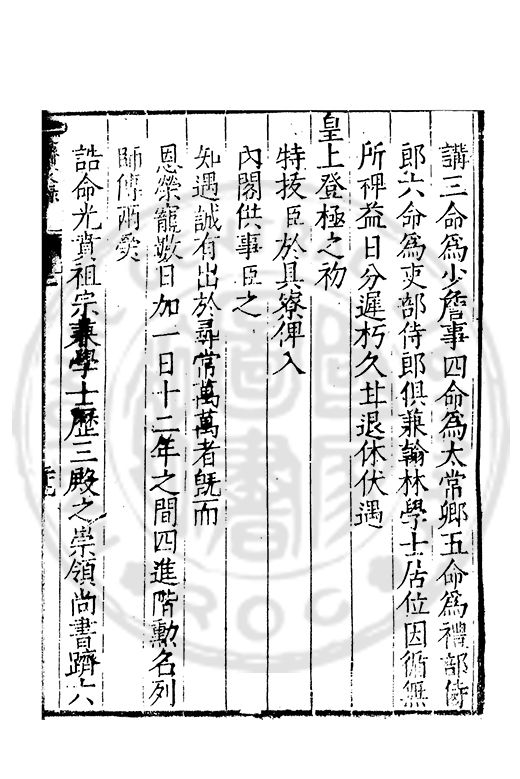 講三命為少詹事四命為太常卿五命為禮部侍
郎六命為吏部侍郎俱兼翰林學士居位因循無
所裨益日分遲朽久甘退休伏遇
皇上登極之初
特拔臣於具寮俾入
內閣供事臣之
知遇誠有出於尋常萬萬者旣而
恩榮寵數日加一日十二年之間四進階勳名列
師傅兩爰
誥命光賁祖宗兼學士歷三殿之崇領尚書躋六